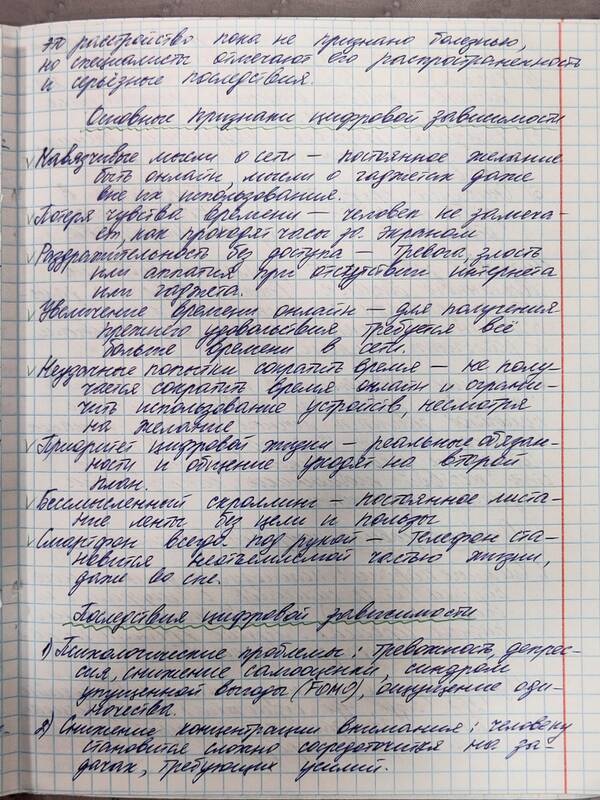 это расстройство пока не признано болезнью,
но специалисты отмечают его распространенность
и серьёзные последствия.
Основные признаки цифровой зависимости
✓ Навязчивые мысли о сети – постоянное желание
быть онлайн, мысли о гаджетах даже
вне их использования.
✓ Потеря чувства времени – человек не замеча-
ет, как проходят часы за экраном
✓ Раздражительность без доступа – тревога, злость
или аппатия при отсутствии интернета
или гаджета.
✓ Увеличение времени онлайн – для получения
прежнего удовольствия требуется всё
больше времени в сети.
✓ Неудачные попытки сократить время – не полу-
чается сократить время онлайн и ограни-
чить использование устройств, несмотря
на желание
✓ Приоритет цифровой жизни – реальные обязан-
ности и общение уходят на второй
план.
✓ Бессмысленный скроллинг – постоянное листа-
ние ленты без цели и пользы
✓ Смартфон всегда под рукой – телефон ста-
новится неотъемлемой частью жизни,
даже во сне.
Последствия цифровой зависимости
1) Психологические проблемы: тревожность, депрес-
сия, снижение самооценки, синдром
упущенной выгоды (FOMO), ощущение оди-
ночества.
2) Снижение концентрации внимания: человеку
становится сложно сосредоточится на за-
дачах, требующих усилий.